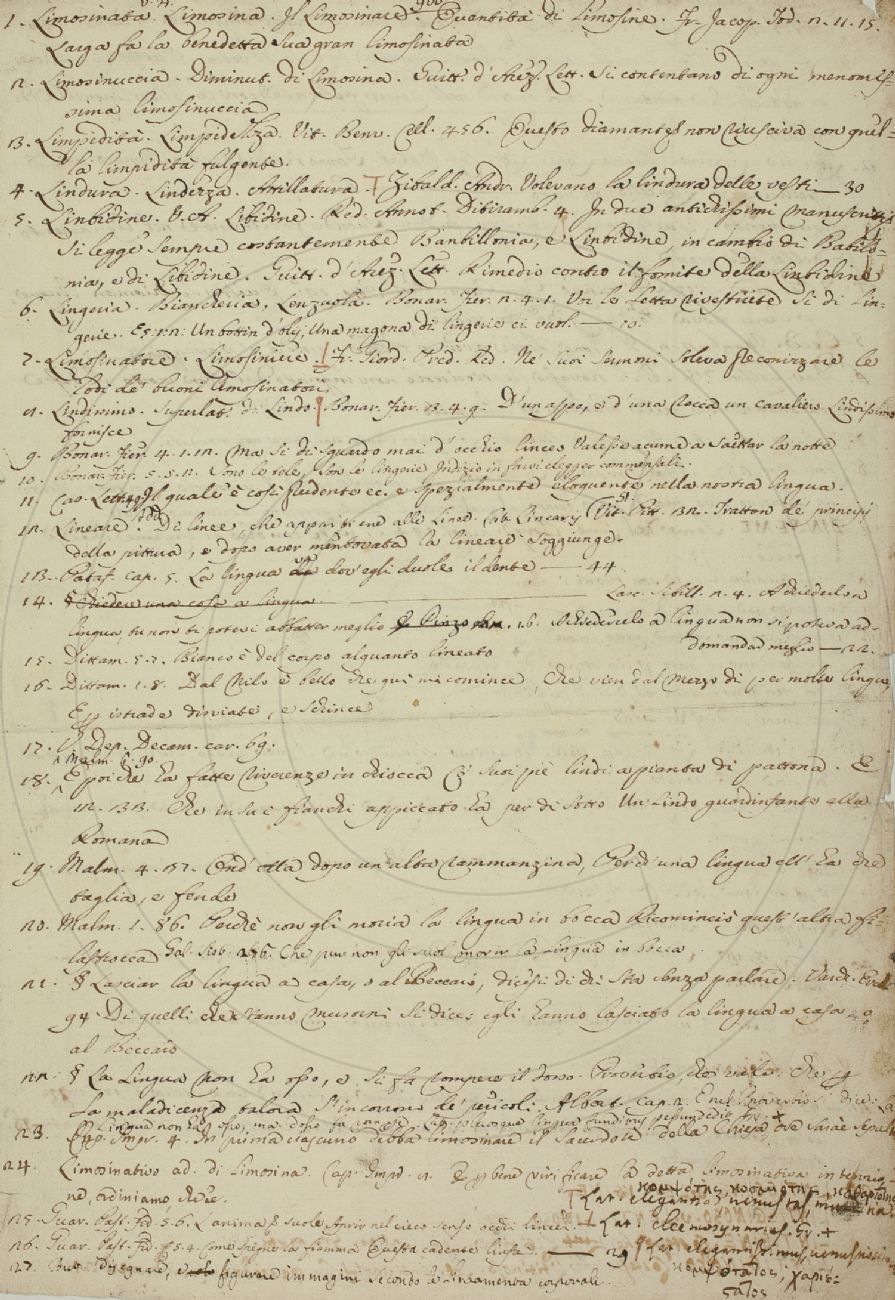 1. Limosinata. Limosina. Il Limosinare. Quantità di Limosine. Fr. Jacop. Tod. 2. 11. 15.
Larga fa la benedetta sua gran limosinata
2. Limosinuccia. Diminut. di Limosina. Guitt. d'Arez. Lett. Si contentano di ogni menomis-
sima limosinuccia
3. Limpidità. Limpidezza. Vit. Benv. Cell. 456. Questo diamante non riusciva con quel-
la limpidità fulgente.
4. Lindura. Lindezza. Attillatura. Zibald. Andr. Volevano la lindura delle vesti — 30
5. Linbidine. V. A. Libidine. Red. Annot. Ditiramb. 4. In due antichissimi manuscritti
si legge sempre costantemente Banbillonia, e Linbidine, in cambio di Babilo-
nia, e di Libidine. Guitt. d'Arez. Lett. Rimedio contro il fomite della Linbidine
6. Lingeria. Biancheria, Lenzuola. Bonar. Fier. 2. 4. 1. Voi le letta rivestite si di lin-
gerie. E 5. 1. 2. Un bottin d'olj, Una magona di lingerie ci vuol. — 10.
7. Limosinatore. Limosiniere. Fr. Giord. Pred. Red. Ne' suoi sermoni soleva sincerizzare le
lodi de' buoni limosinatori.
8. Lindissimo. Superlat. di Lindo. Bonar. Fier. 3. 4. 9. D'un aspo, e d'una rocca un cavaliero lindissimo
fornisce
9. Bonar. Fier. 4. 1. 12. Ma si di sguardo mai d'occhio linceo Valesse acume a saettar la notte
10. Bonar. Fier. 5. 5. 2. Sono le tele, son le lingerie Indizio in farvi elegger commensali.
11. Car. Lett. Il quale è così studente ec. e spezialmente eloquente nella nostra lingua.
12. Lineare. Add. Di linee, che appartiene alle Linee. Lat. Linearis. Vit. Pitt. 32. Trattan de' principj
della pittura, e dopo aver mentovata la lineare soggiunge.
13. Pataf. cap. 5. La lingua va dov'egli duole il dente — 44
14. § Chieder una cosa a lingua — Lasc. Sibill. 2. 4. A chiederla a
lingua, tu non ti potevi abbatter meglio. 16. A chiederlo a lingua non si poteva ad-
domandar meglio — 22.
15. Dittam. 5. 7. Bianco è del corpo alquanto lineato
16. Dittam. 1. 8. Dal Nilo è bello che qui mi comince, Che vien dal Mezzo dì per molte lingue,
E p istrade disviate, e schince
17. V. Dep. Decam. car. 69.
Malm. 6. 90
18. E poiché ha fatte riverenze in chiocca Co' suoi piè lindi a pianta di pattona. E
12. 133. Che in sui fianchi appiccato ha per di sotto Un lindo guardinfante alla
Romana
19. Malm. 4. 17. Ond' ella dopo un'alta rammanzina, Perch' una lingua ell' ha che
taglia, e fende
20. Malm. 1. 86. Perchè non gli moria la lingua in bocca Ricominciò quest'altra fi-
lastrocca Che pur non gli suol morir la lingua in bocca.
21. § Lasciar la lingua a casa, o al Beccaio, dicesi di chi sta senza parlare. Varch. Ercol.
94. Di quelli che stanno musorni si dice: egli hanno lasciato la lingua a casa, o
al Beccaio
22. § La Lingua non ha osso, e si fa rompere il dosso. Proverbio, che vale che p
la maladicenza talora s'incorrono de' pericoli. Albert. cap. 2. E nel Proverbio si dice: La
lingua non ha osso, ma dosso fa rompere.
23. Cap. Impr. 4. In prima ciascuno debba limosinare il sacerdote della Chiesa ove sarà
24. Limosinativo ad. di Limosina. Cap. Impr. p bene vivificare la detta limosinativa intenzio-
ne, ordiniamo che ec.
Lat. elegantia, venustas
25. Guar. Past. Fid. 5. 6. L'anima suole Aprir nel cieco senso occhi lincei. Lat. eleemosynarius. Gr. +
26. Guar. Past. Fid. 5. 4. Come spegne la fiamma Questa cadente — 29 Lat. elegantissimus, venustissimus
27. Disegnare, e figurare immagini secondo le lineamenta corporali.